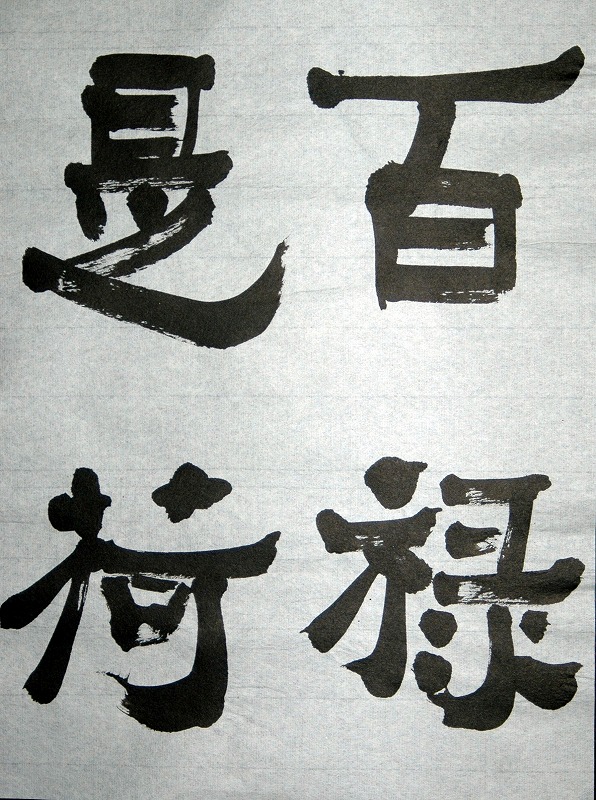 百禄
是荷